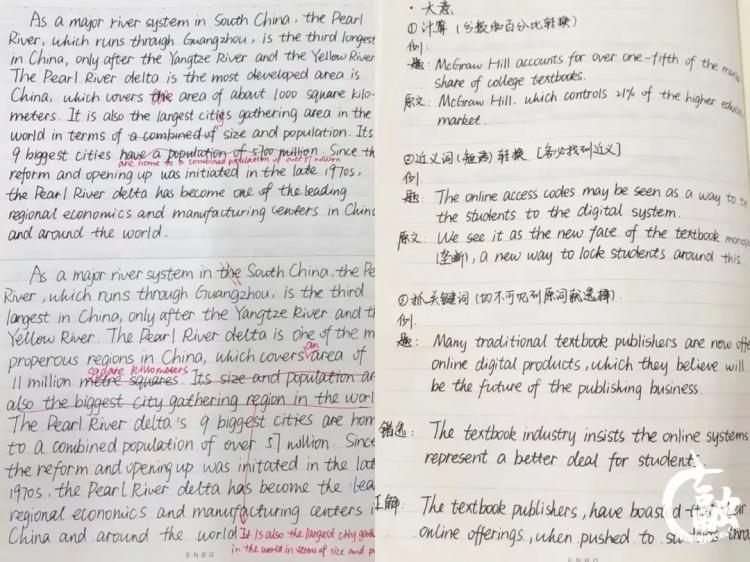 As a major river system in South China, the Pearl
River, which runs through Guangzhou, is the third longest
in China, only after the Yangtze River and the Yellow River
The Pearl River delta is the most developed area is
China, which covers the area of about 1000 square kilo-
meters. It is also the largest cities gathering area in the
world in terms of a combined of size and population. Its
9 biggest cities have a population of 5700 million. Since th
are home to a combined population of over 57 million
reform and opening up was initiated in the late 1970s,
the Pearl River delta has become one of the leading
regional economics and manufacturing centers in China
and around the world.
As a major river system in the South China, the Pe
River, which runs through Guangzhou, is the third
largest in China, only after the Yangtze River and th
Yellow River. The Pearl River delta is one of the m
properous regions in China, which covers an area of
square killometers
11 million metre squares. Its size and population ar
also the biggest city gathering region in the worl
The Pearl River delta's 9 biggest cities are hom
to a combined population of over 57 million. Since
the reform and opening up was initated in the lat
1970s, the Pearl River delta has become the lea
regional economics and manufacturing centers i
China and around the world It is also the largest city gath
in the world in terms of size and p
ENBO
·大意
①计算(分数和百分比转换)
例:
题: McGraw Hill accounts for over one-fifth of the
share of college textbooks.
原文: McGraw Hill, which controls 21% of the higher educ
market.
②近义词(短语)转换 [务必找到近义]
例.
题: The online access codes may be seen as a way to t
the students to the digital system.
原文: We see it as the new face of the textbook monop
(垄断), a new way to lock students around this
③抓关键词(切不可见到原词就选择).
例.
题: Many traditional textbook publishers are now offe
online digital products, which they believe will
be the future of the publishing business.
错选: The textbook industry insists the online systems
represent a better deal for student
正解: The textbook publishers, have boasted
online offerings, when pushed to
ENBO
融